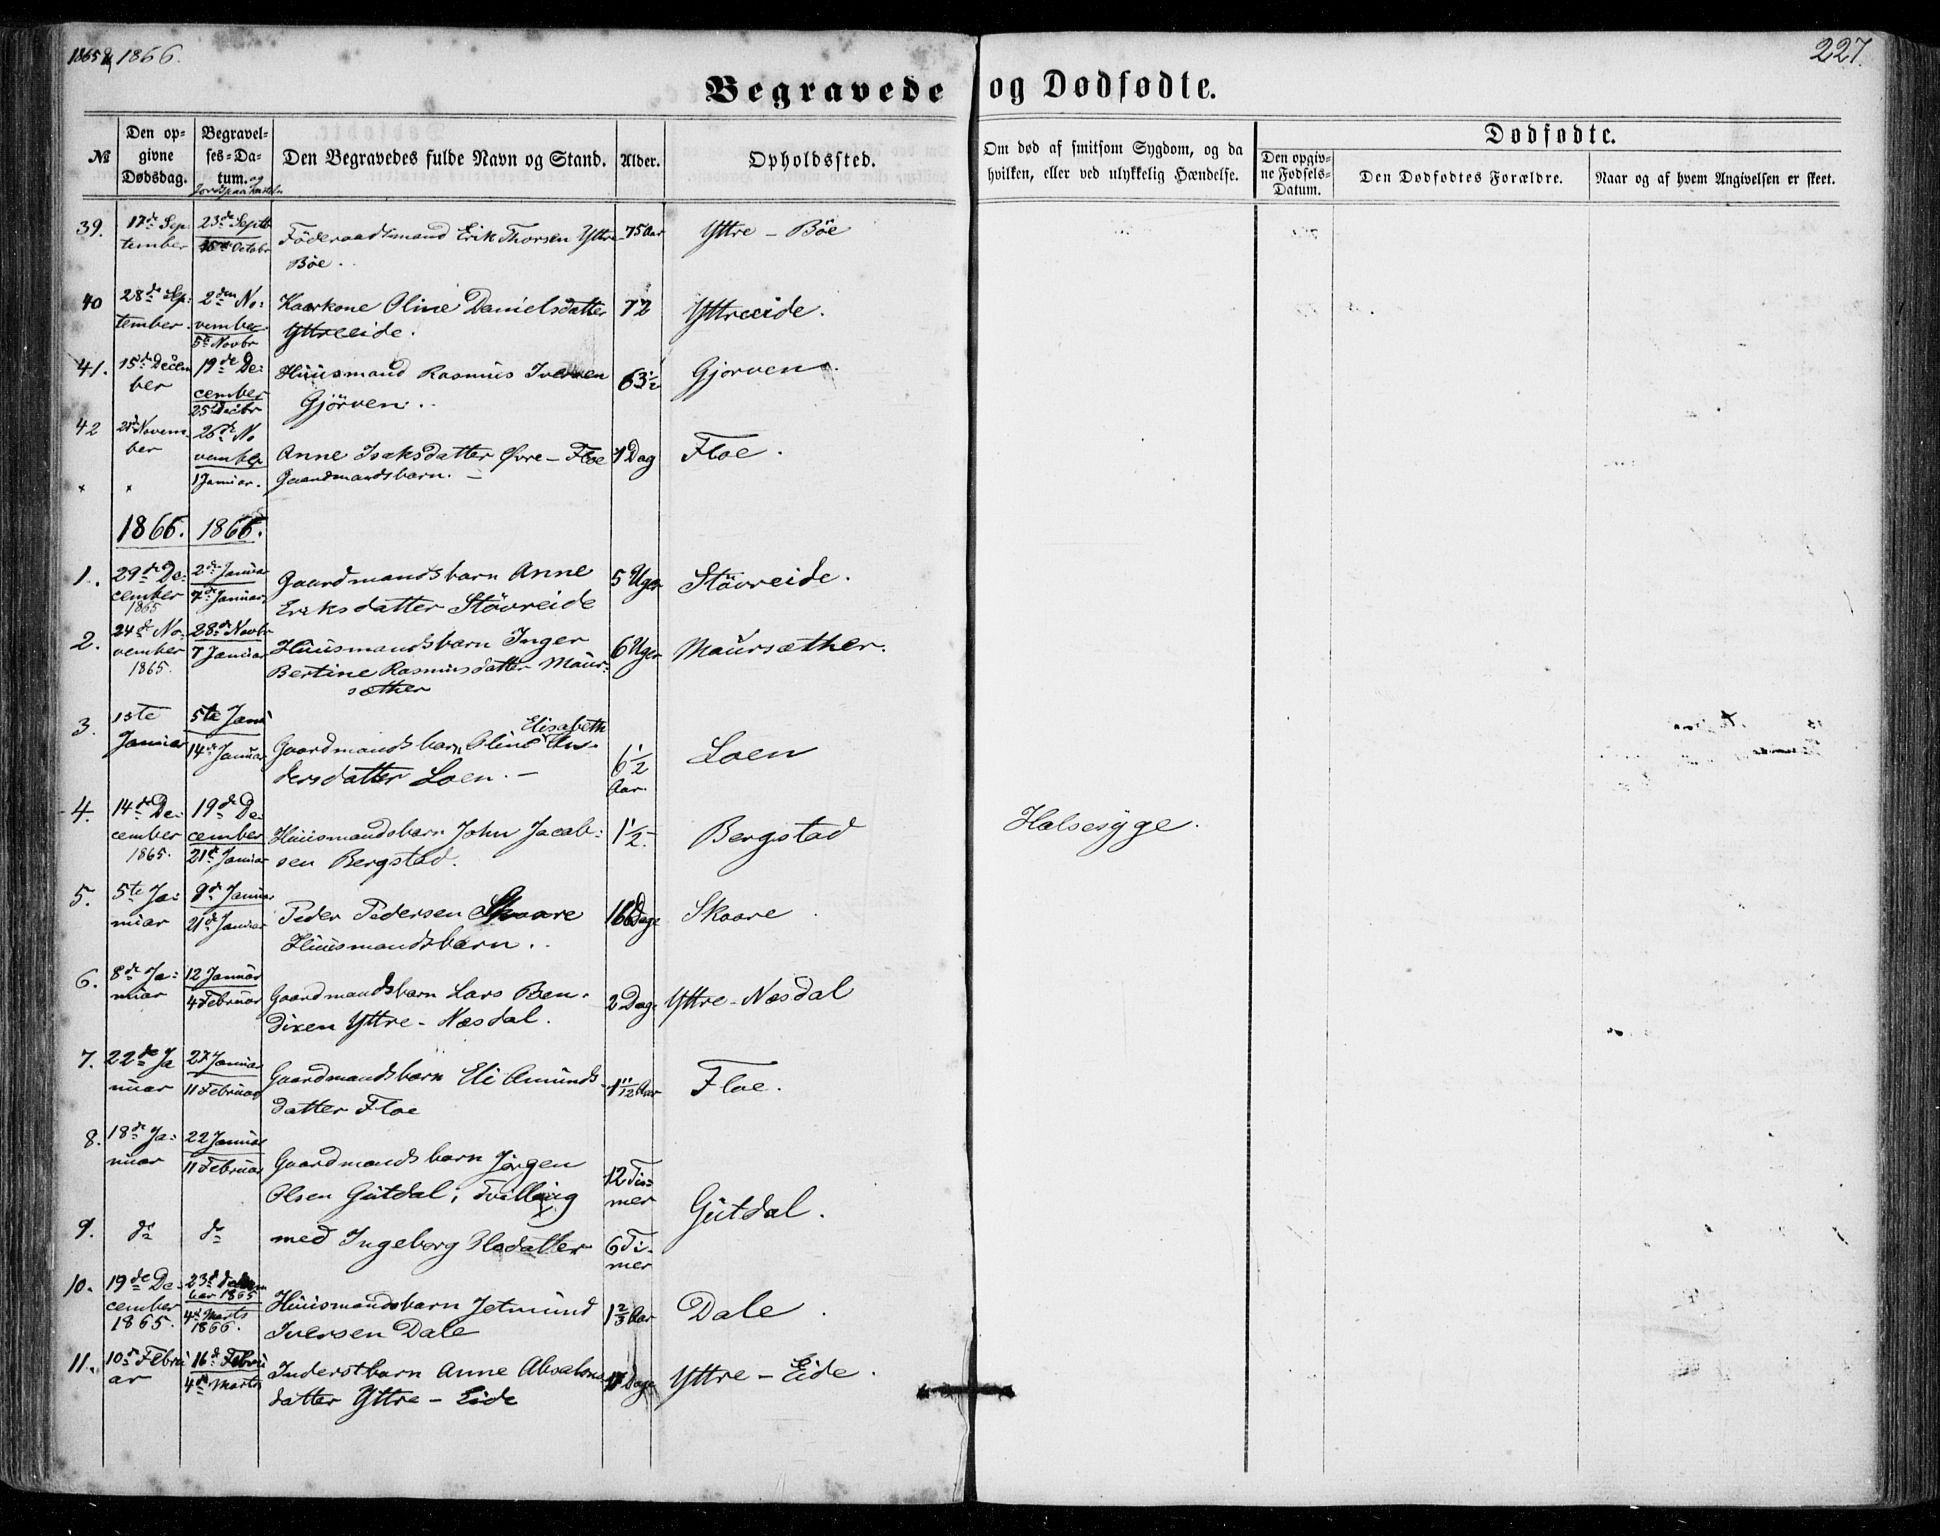 1865 & 1866.
227.
Begravede og Dødfødte.
№
Den opgivne Dødsdag.
Begravelses-Datum. og Jordspaakastelse
Den Begravedes fulde Navn og Stand.
Alder.
Opholdssted.
Om død af smitsom Sygdom, og da hvilken, eller ved ulykkelig Hændelse.
Dødfødte.
Den opgivne Fødsels-Datum.
Den Dødfødtes Forældre.
Naar og af hvem Angivelsen er skeet.
39. 17de September 23de Septb Octobr Föderaadsmand Erik Thorsen Yttre 75 Aar Yttre - Böe
Böe.
40 28de September. 2den November 5te Novbr Kaarkone Oline Danielsdatter 72 Yttreeide.
Yttreeide.
41. 15de December 19de December 25 Decbr Huusmand Rasmus Iversen 63½ Gjörven.
Gjörven.
42 November 26de November 1 Januar. Anne Isaksdatter Øvre - Floe 1 Dag Floe.
Gaardmandsbarn. -
1866. 1866.
1. 29de December 1865 2de Januar 7de Januar Gaardmandsbarn Anne 5 Uger Stövreide.
Eriksdatter Stövreide
2. 24de November 1865. 28de Novbr 7 Januar Huusmandsbarn Inger 6 Uger Maursæther.
Bertine Rasmusdatter Maur-
sæther
3. 1ste Januar 5te Janu 14de Januar Gaardmandsbarn Oline Elisabeth An- 6½ Aar Loen
dersdatter Loen. -
4. 14de December 1865. 19de December 21de Januar Huusmandsbarn John Jacob- 1½ Bergstad Halsesyge.
sen Bergstad.
5. 5te Januar 9de Januar 21de Januar Peder Pedersen Skaare 16 Dage Skaare
Huusmandsbarn.
6. 8de Januar 12 Januar 4 Februar Gaardmandsbarn Lars Ben- 2 Dage Yttre-Næsdal
dixen Yttre-Næsdal.
7. 22de Januar 27 Januar 11 Februar Gaardmandsbarn Eli Amunds- 1 11/12 Aar Floe.
datter Floe
8. 18de Januar 22 Januar 11 Februar Gaardmandsbarn Jörgen 12 Timer Gutdal.
Olsen Gutdal, Tvilling
9. do do med Ingeborg Olsdatter 6 Timer
10. 19de December 1865. 23de Decem ber 1865 4de Marts 1866. Huusmandsbarn Jetmund 1 2/3 Aar Dale
Iversen Dale
11. 10de Februar 16de Februar 4de Marts Inderstbarn Anne Absalons- Dage Yttre - Eide.
datter Yttre - Eide